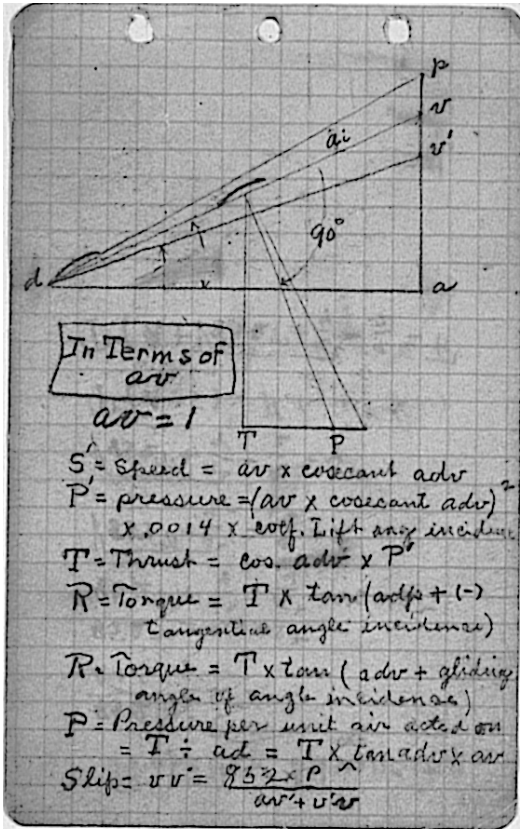 p
v
ai
v'
90°
d
a
In Terms of
av
av = 1
T P
S' = Speed = av x cosecant adv
P' = pressure = (av x cosecant adv)²
x .0014 x coef. Lift ang incidence
T = Thrust = cos. adv x P'
R = Torque = T x tan (adp + (-)
tangential angle incidence)
R = Torque = T x tan (adv + gliding
angle of angle incidence)
P = Pressure per unit air acted on
= T ÷ ad = T x tan adv x av
Slip = vv' = 852 x P
av' + v'v